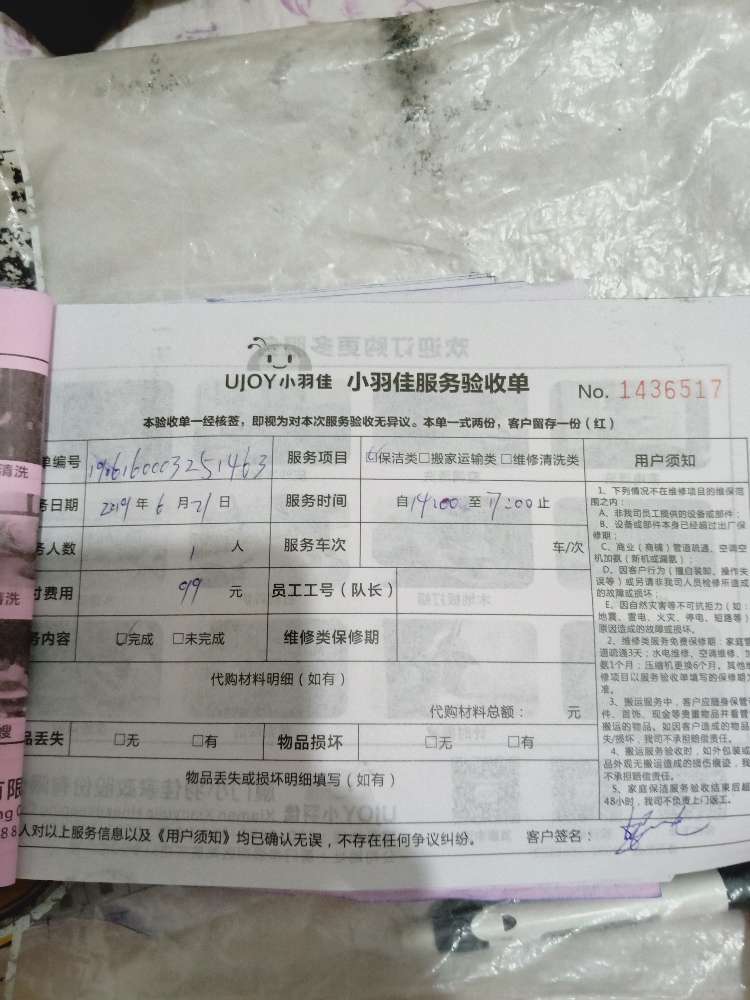 UJOY小羽佳 小羽佳服务验收单 No. 1436517
本验收单一经核签，即视为对本次服务验收无异议。本单一式两份，客户留存一份（红）
单编号 服务项目 ☑保洁类□搬家运输类□维修清洗类 用户须知
务日期 2019 年 6 月 21 日 服务时间 自 14:00 至 17:00 止
务人数 1 人 服务车次 车/次
付费用 99 元 员工工号（队长）
务内容 ☑完成 □未完成 维修类保修期
代购材料明细（如有）
代购材料总额： 元
品丢失 □无 □有 物品损坏 □无 □有
物品丢失或损坏明细填写（如有）
人对以上服务信息以及《用户须知》均已确认无误，不存在任何争议纠纷。 客户签名：
1、下列情况不在维修项目的维保范
围之内：
A、非我司员工提供的设备或部件；
B、设备或部件本身已经超过出厂保
修期；
C、商业（商铺）管道疏通、空调空
机加氨（新机或漏氨）；
D、因客户行为（擅自装卸、操作失
误等）或另请非我司人员检修所造成
的故障或损坏；
E、因自然灾害等不可抗拒力（如：
地震、雷电、火灾、停电、短路等）
原因造成的故障或损坏。
2、维修类服务免费保修期：家庭管
道疏通3天；水电维修、空调维修、加
氨1个月；压缩机更换6个月。其他维
修项目以服务验收单填写的保修期为
准。
3、搬运服务中，客户应随身保管
件、首饰、现金等贵重物品并看管
搬运的物品。如因客户造成的物品
失/损坏，我司不承担赔偿责任。
4、搬运服务验收时，如外包装或
品外观无搬运造成的损伤痕迹，我
不承担赔偿责任。
5、家庭保洁服务验收结束后超
48小时，我司不负责上门返工。
清洗
清洗